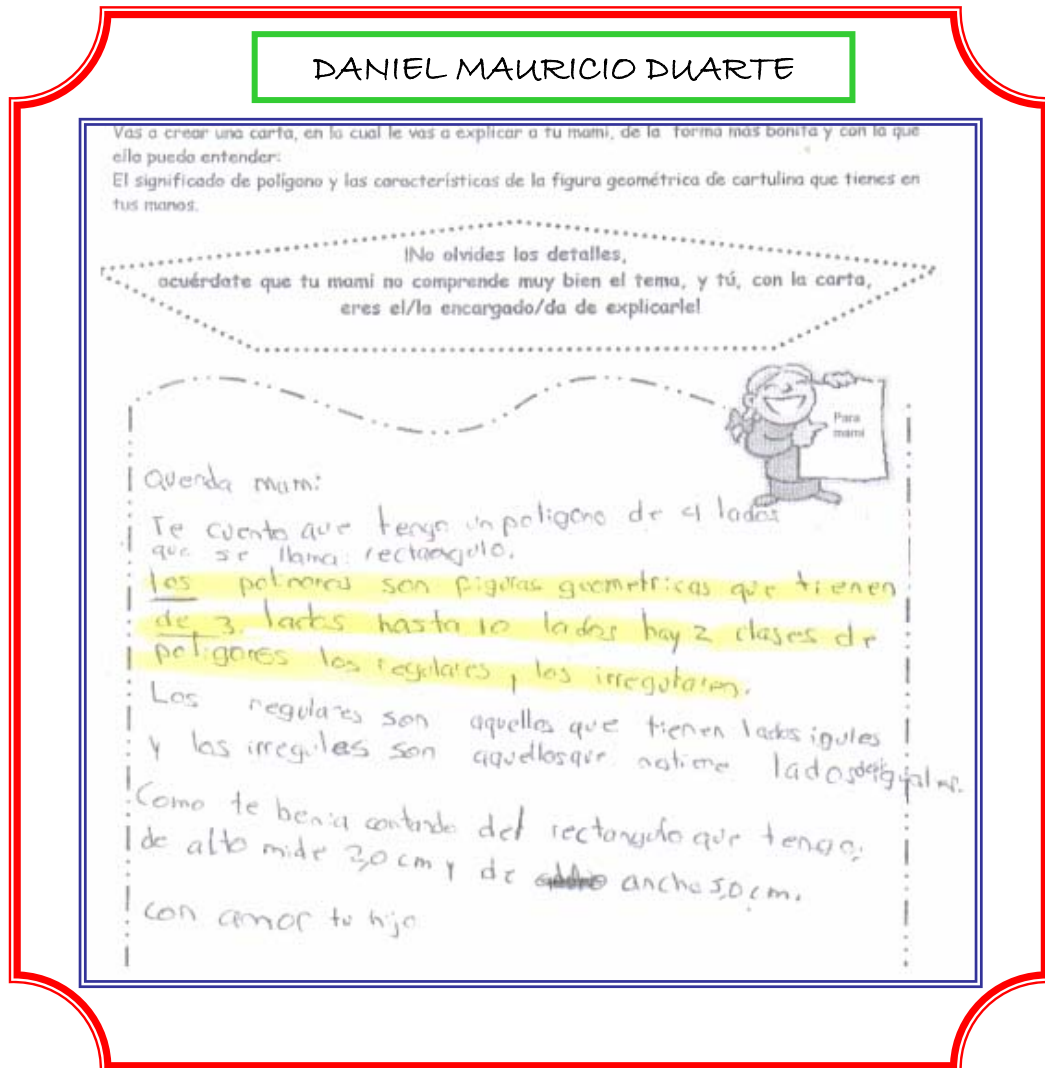 DANIEL MAURICIO DUARTE
Vas a crear una carta, en la cual le vas a explicar a tu mami, de la forma más bonita y con la que
ella pueda entender:
El significado de polígono y las características de la figura geométrica de cartulina que tienes en
tus manos.
!No olvides los detalles,
acuérdate que tu mami no comprende muy bien el tema, y tú, con la carta,
eres el/la encargado/da de explicarle!
Para
mami
Querida mami:
Te cuento que tengo un poligono de 4 lados
que se llama: rectangulo.
los son figuras geometricas que tienen
de 3 lados hasta 10 lados hay 2 clases de
poligonos los regulares y los irregulares.
Los regulares son aquellos que tienen lados igules
y los irregules son aquellosque lados
Como te benia contando del rectangulo que tengo;
de alto mide 3,0 cm y de ancho 5,0 cm.
con amor tu hijo